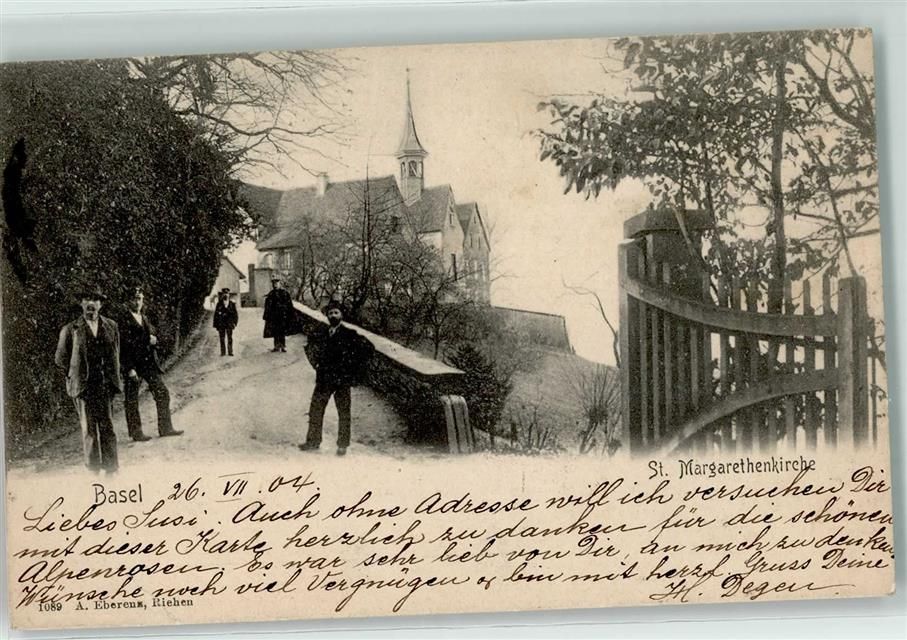 St. Margarethenkirche
Basel 26. VII. 04.
Liebes Susi. Auch ohne Adresse will ich versuchen Dir
mit dieser Karte herzlich zu danken für die schönen
Alpenrosen. Es war sehr lieb von Dir, an mich zu denken.
Wünsche noch viel Vergnügen & bin mit herzl. Gruss Deine
M. Degen
1089 A. Eberenz, Riehen